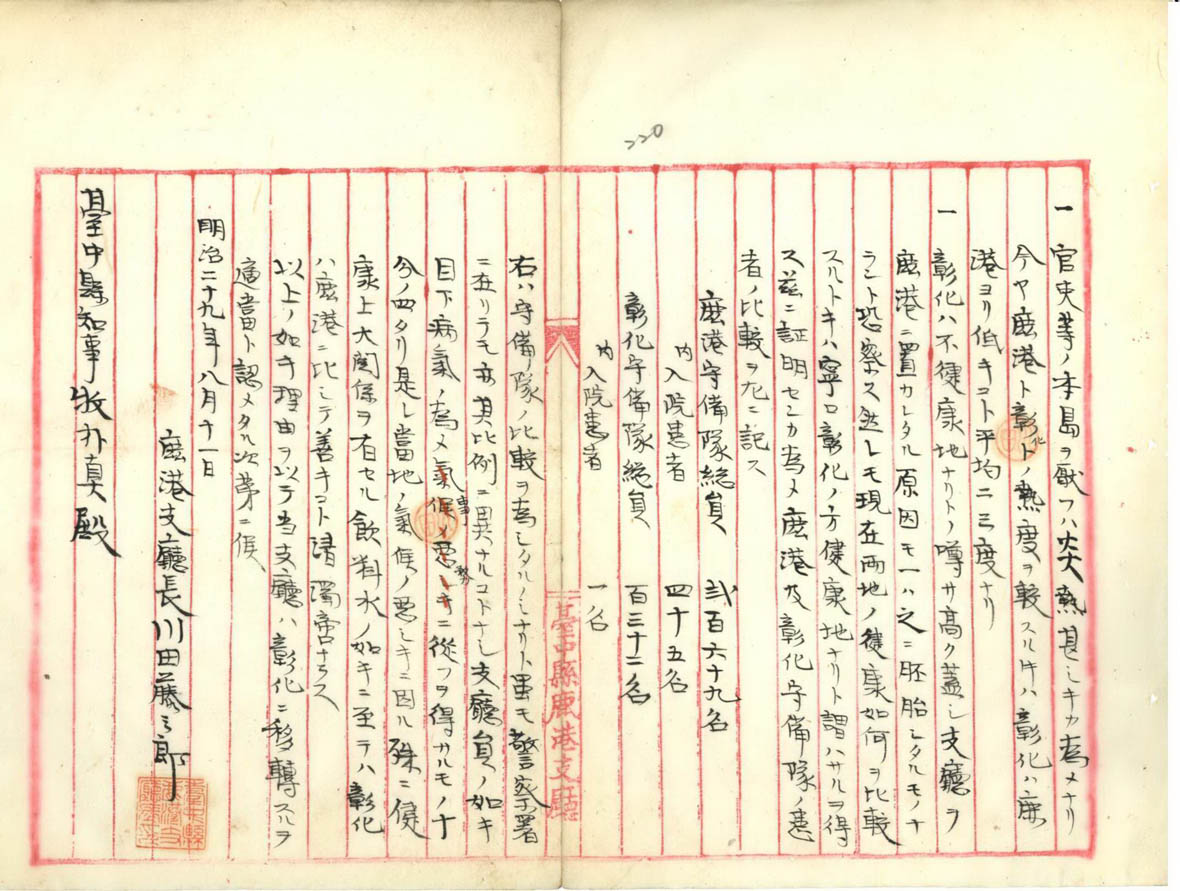 220
一官吏等ノ本島ヲ厭フハ炎熱甚シキカ為メナリ
今ヤ鹿港ト彰化トノ熱度ヲ較スルトキハ彰化ハ鹿
港ヨリ低キコト平均二三度ナリ
一彰化ハ不健康地ナリトノ噂サ高ク蓋シ支廳ヲ
鹿港ニ置カレタル原因モ一ハ之ニ胚胎シタルモノナ
ラント恐察ス然レモ現在両地ノ健康如何ヲ比較
スルトキハ寧ロ彰化ノ方健康地ナリト謂ハサルヲ得
ス茲ニ証明センカ為メ鹿港及彰化守備隊ノ患
者ノ比較ヲ左ニ記ス
鹿港守備隊総員 貮百六十九名
内入院患者 四十五名
彰化守備隊総員 百三十二名
内入院患者 一名
臺中縣鹿港支廳
右ハ守備隊ノ比較ヲ為シタルノミナリト虽モ警察署
ニ在リテモ亦其比例ニ異ナルコトナシ支廳員ノ如キ
目下病氣ノ為メ事務ニ從フヲ得サルモノ十
分ノ四タリ是レ當地ノ氣候ノ悪シキニ因ル殊ニ健
康上大関係ヲ有セル飲料水ノ如キニ至テハ彰化
ハ鹿港ニ比シテ善キコト清濁啻ナラス
以上ノ如キ理由ヲ以テ当支廳ハ彰化ニ移轉スルヲ
適當ト認メタル次第ニ候
明治二十九年八月十一日
鹿港支廳長川田藤三郎
臺中縣知事牧朴真殿